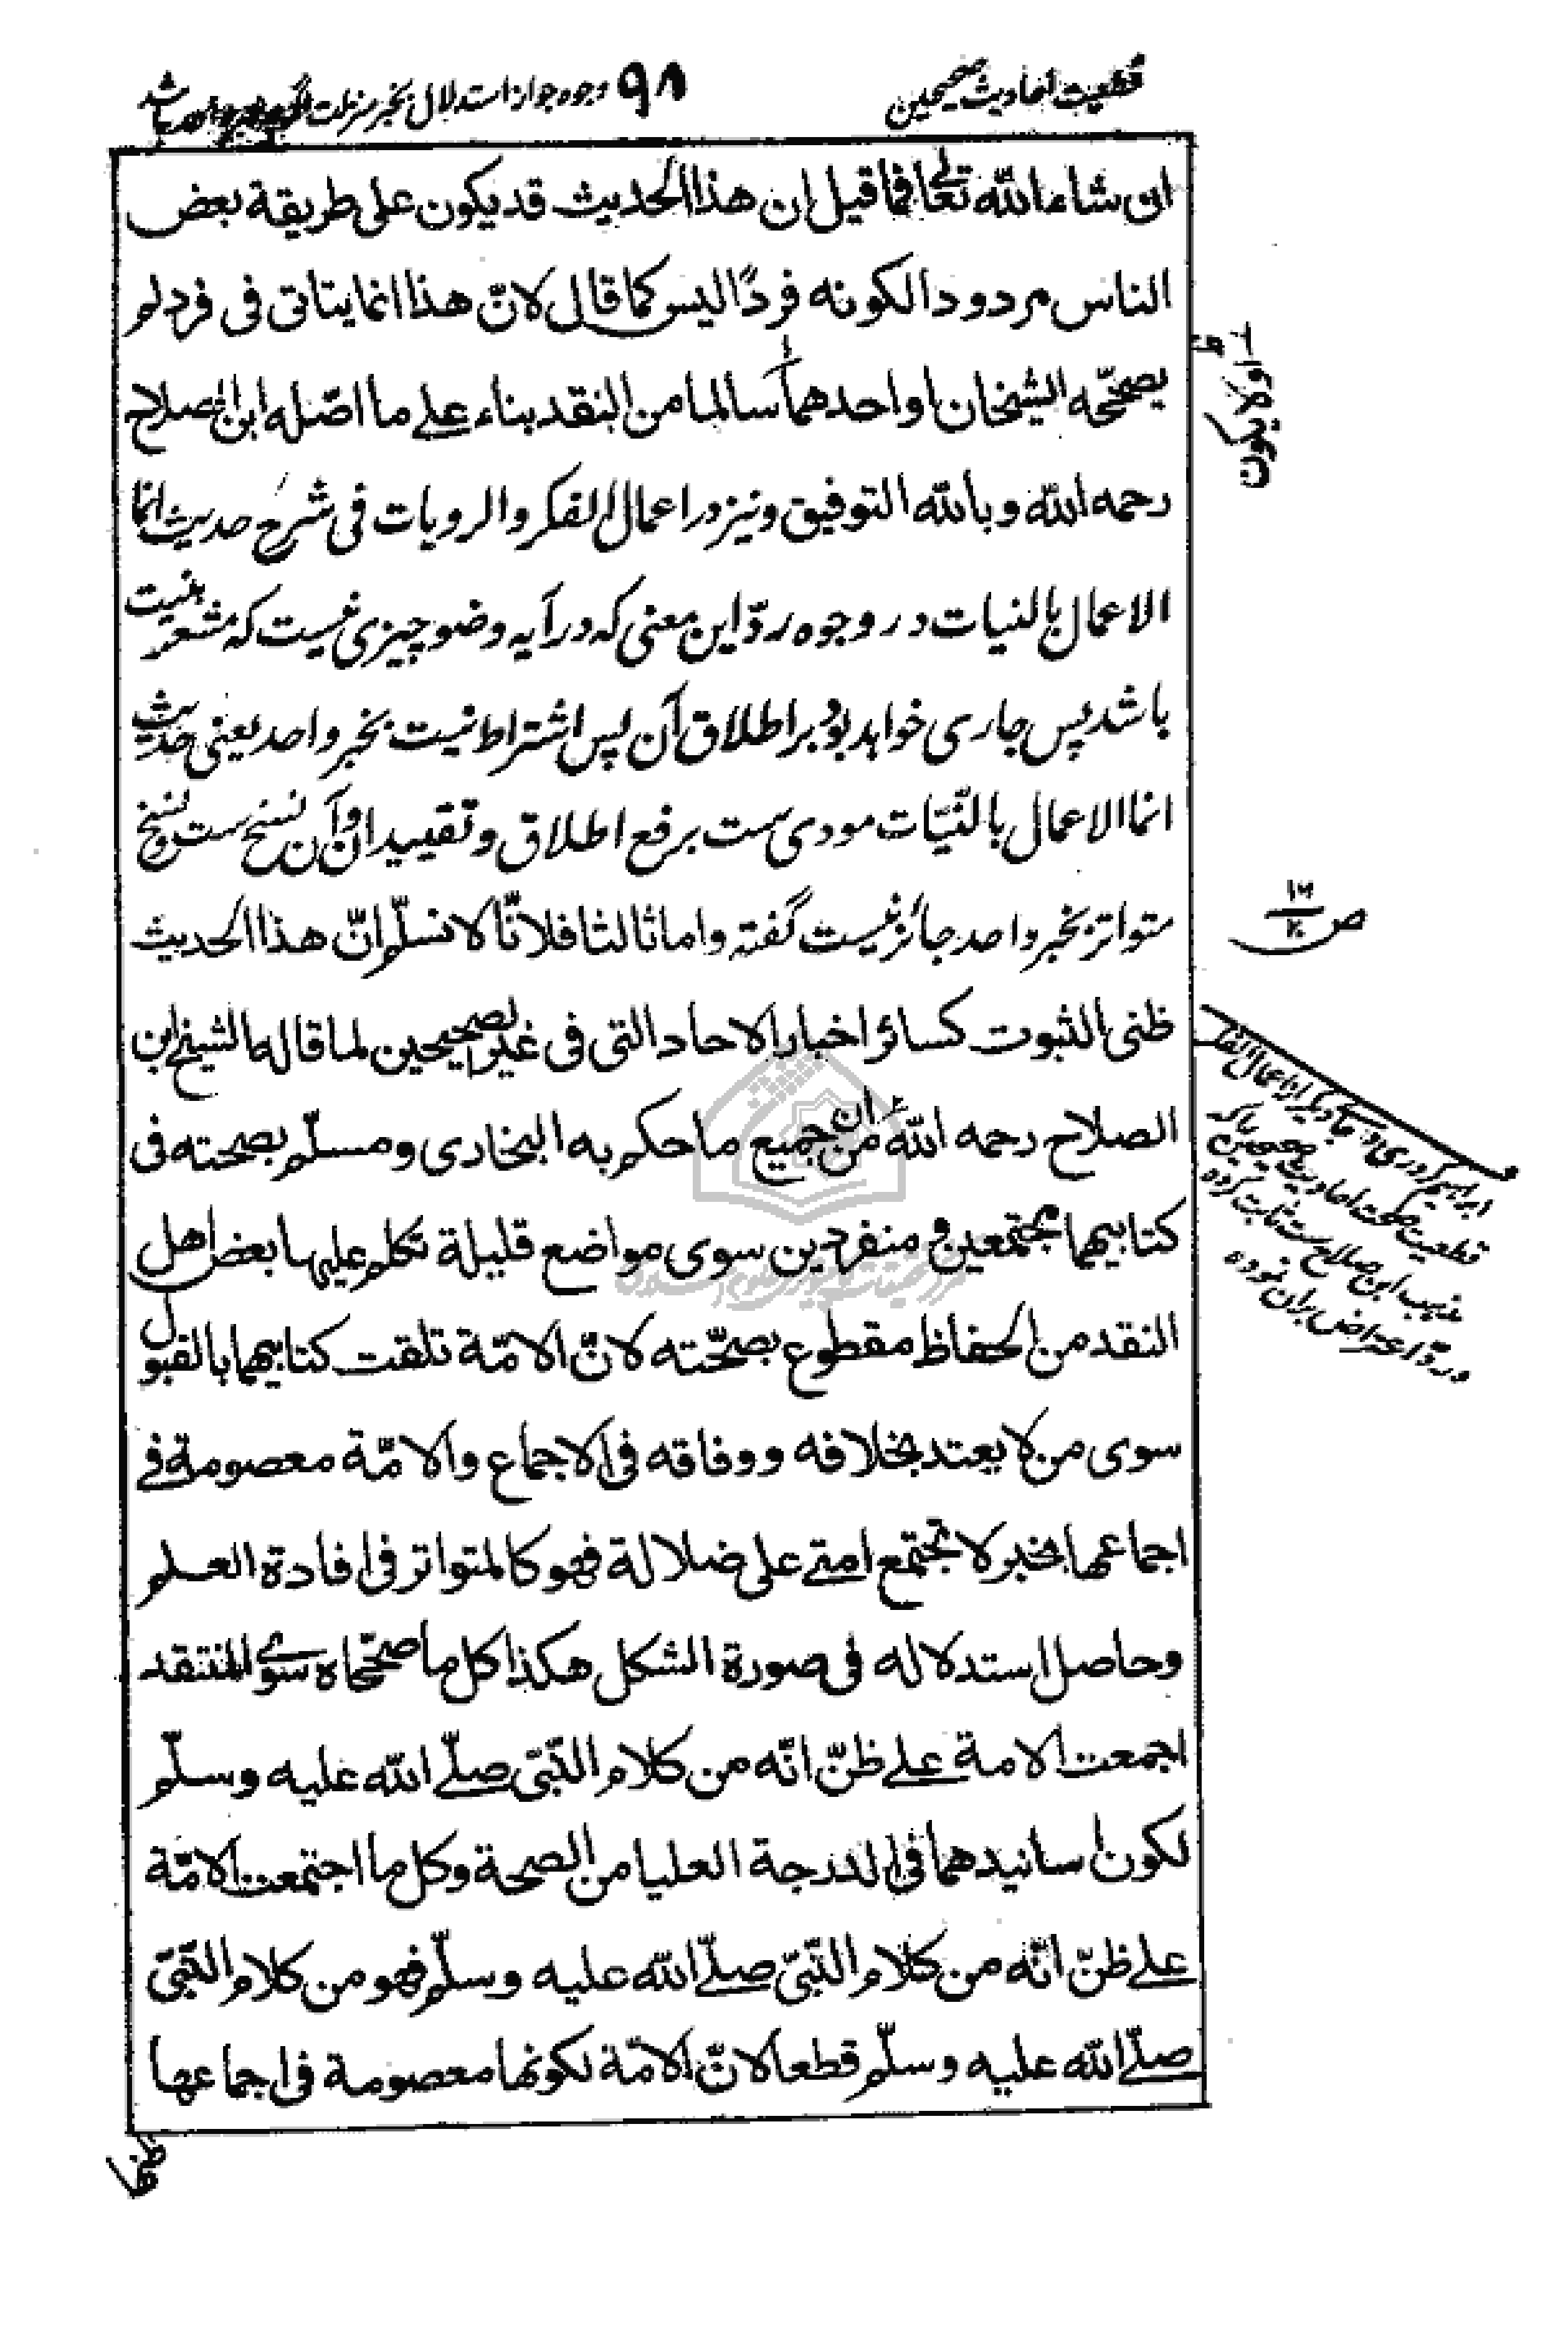 قطعیت احادیث صحیحین
۹۸ وجوه جواز استدلال بخبر منزلت
ان شاء الله تعالى فما قيل ان هذا الحديث قد يكون على طريقة بعض
الناس مردودا لكونه فردًا ليس كما قال لانّ هذا انما يتاتى فى فرد لم
يصحّحه الشيخان او احدهما سالما من النقد بناء على ما اصّله ابن الصلاح
رحمه الله وبالله التوفيق ونیز در اعمال الفكر والرويات فى شرح حديث انما
الاعمال بالنيات در وجوه ردّ این معنی که در آیه وضو چیزی نیست که مشعر بنیت
باشد پس جاری خواهد بود بر اطلاق آن پس اشتراط نیت بخبر واحد یعنی حدیث
انما الاعمال بالنّيّات مودی ست برفع اطلاق و تقیید ان و آن نسخ ست و نسخ
متواتر بخبر واحد جائز نیست گفته واما ثالثا فلانّا لا نسلّم انّ هذا الحديث
ظنى الثبوت كسائر اخبار الاحاد التى فى غير الصحيحين لما قاله الشيخ ابن
الصلاح رحمه الله من ان جميع ما حكم به البخارى ومسلّم بصحته فى
كتابيهما مجتمعين و منفردين سوى مواضع قليلة تكلم عليها بعض اهل
النقد من الحفاظ مقطوع بصحّته لانّ الامّة تلقت كتابيهما بالقبول
سوى من لا يعتد بخلافه ووفاقه فى الاجماع والامّة معصومة فى
اجماعها بخبر لا تجتمع امتى على ضلالة فهو كالمتواتر فى افادة العلم
وحاصل استدلاله فى صورة الشكل هكذا كل ما صحّحاه سوى المنتقد
اجمعت الامة على ظنّ انّه من كلام النّبىّ صلّى الله عليه وسلّم
لكون اسانيدهما فى الدرجة العليا من الصحة وكل ما اجتمعت الامّة
على ظنّ انّه من كلام النّبىّ صلّى الله عليه وسلّم فهو من كلام النّبىّ
صلّى الله عليه وسلّم قطعا لانّ الامّة لكونها معصومة فى اجماعها
ص ۱۲/۲
ابراهیم کردی در جای دیگر از اعمال الفکر
قطعیت صحت احادیث صحیحین را که
مذهب ابن صلاح ست ثابت کرده
و ردّ اعتراض بران نموده